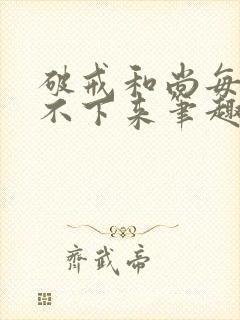 破戒和尚每
不下来笔趣
齐武帝